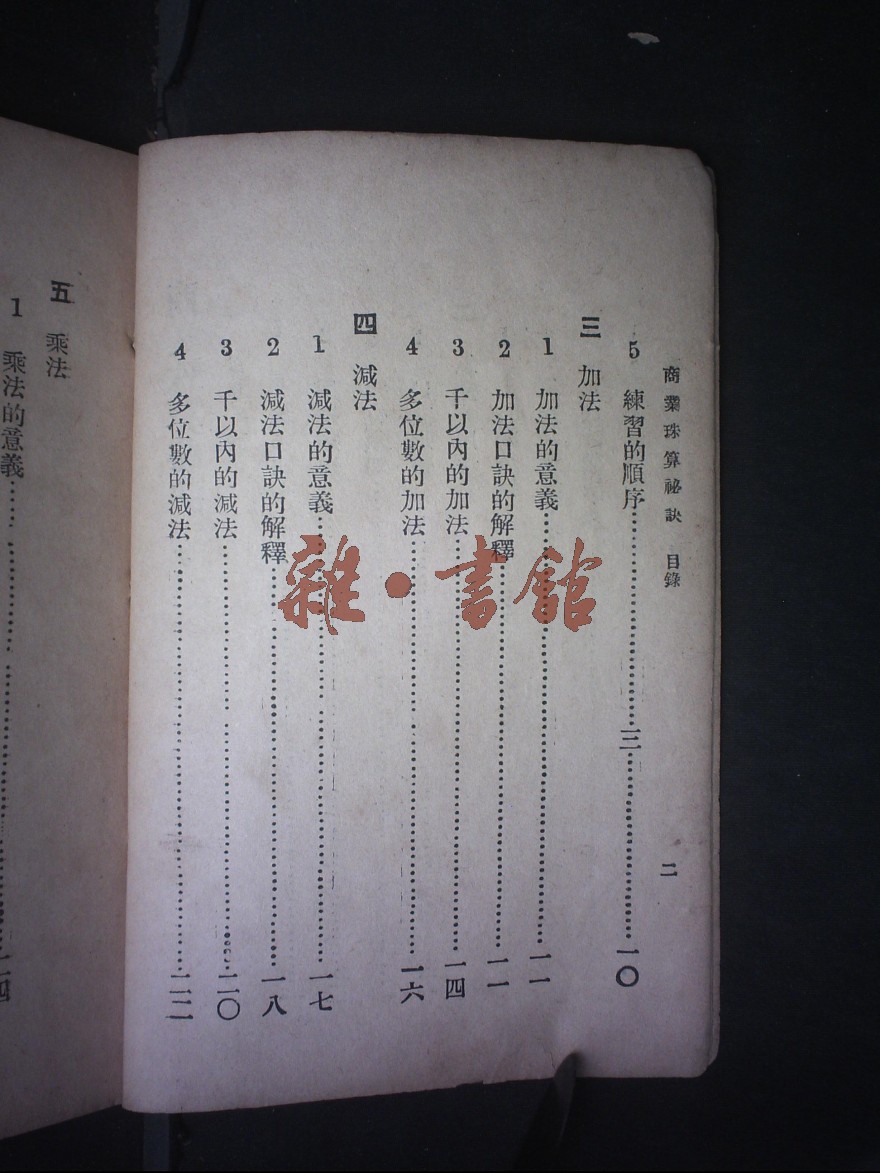 商業珠算祕訣　目錄　二
5　練習的順序……三……一〇
三　加法
1　加法的意義……一一
2　加法口訣的解釋……一一
3　千以內的加法……一四
4　多位數的加法……一六
四　減法
1　減法的意義……一七
2　減法口訣的解釋……一八
3　千以內的減法……二〇
4　多位數的減法……二二
五　乘法
1　乘法的意義……二四
雜·書館